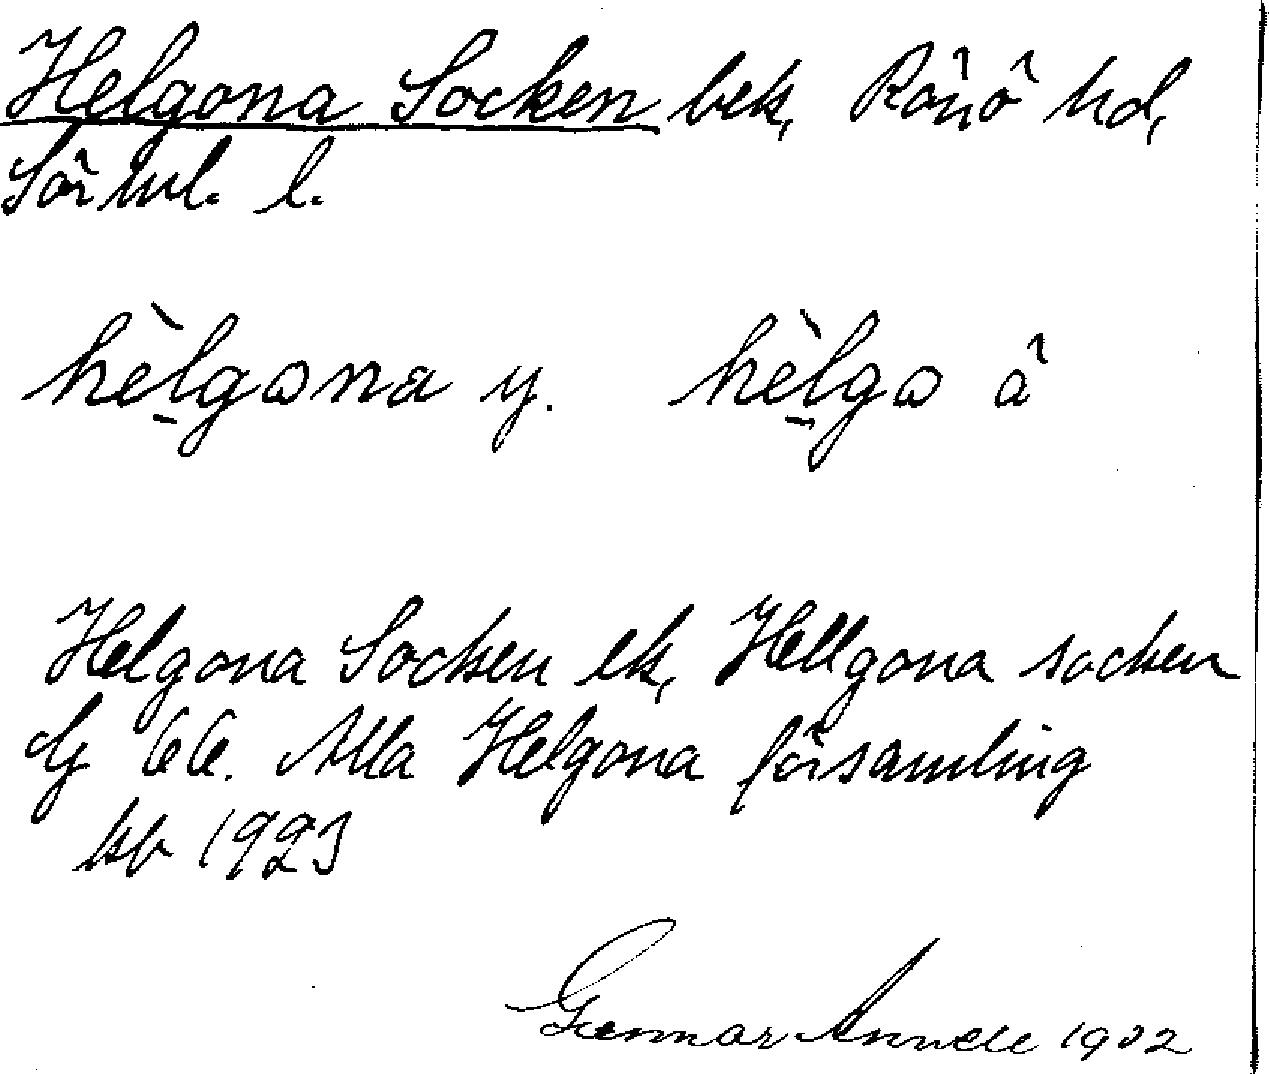 Helgona Socken bek, Rönö hd,
Sörml. l.
hèl̠gona y. hèl̠go å
Helgona Socken ek, Hellgona socken
Gs 66. Alla Helgona församling
kb 1923
Gunnar Annell 1932